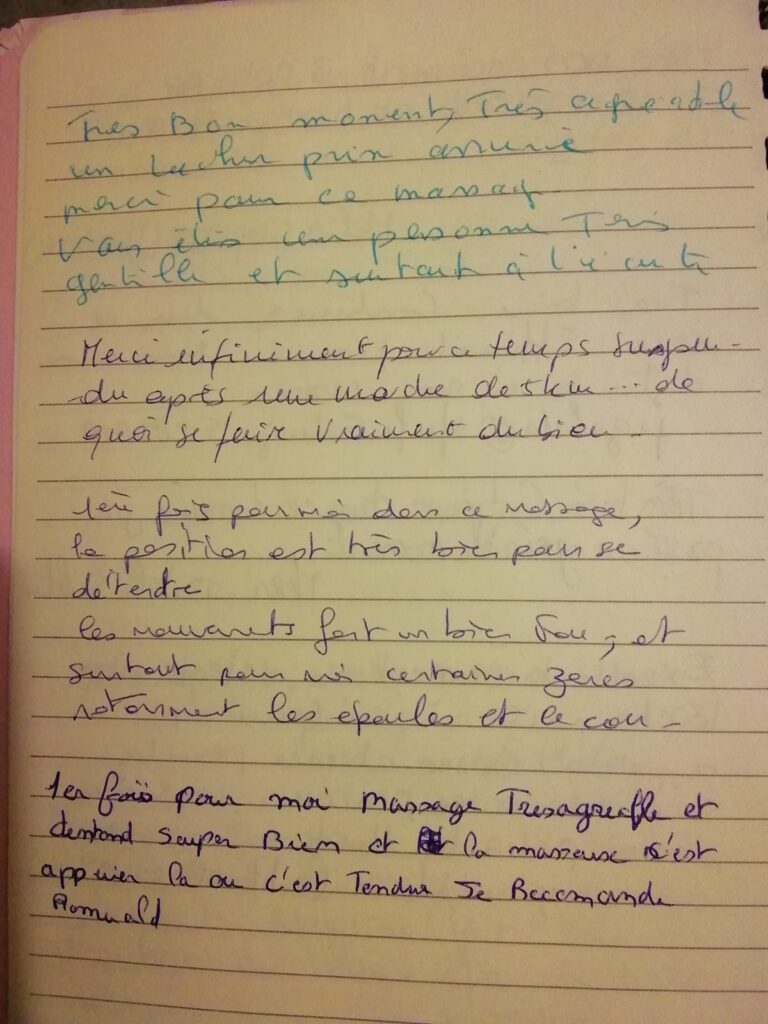 Tres Bon moment, Très agreable
un lacher prise assurée
merci pour ce massag
Vous étes une personne Très
gentille et surtout à l'écoute
Merci infiniment pour ce temps suspen-
du après une marche de 5 km... de
quoi se faire vraiment du bien.
1ère fois pour moi dans ce massage,
la position est très bien pour se
détendre
les mouvements font un bien fou, et
surtout pour moi certaines zones
notamment les epaules et le cou -
1er fois pour moi massage Tres agreable et
demtond souper Bien et la masseuse s'est
appuier la ou c'est Tendue Je Recomande
Romuald